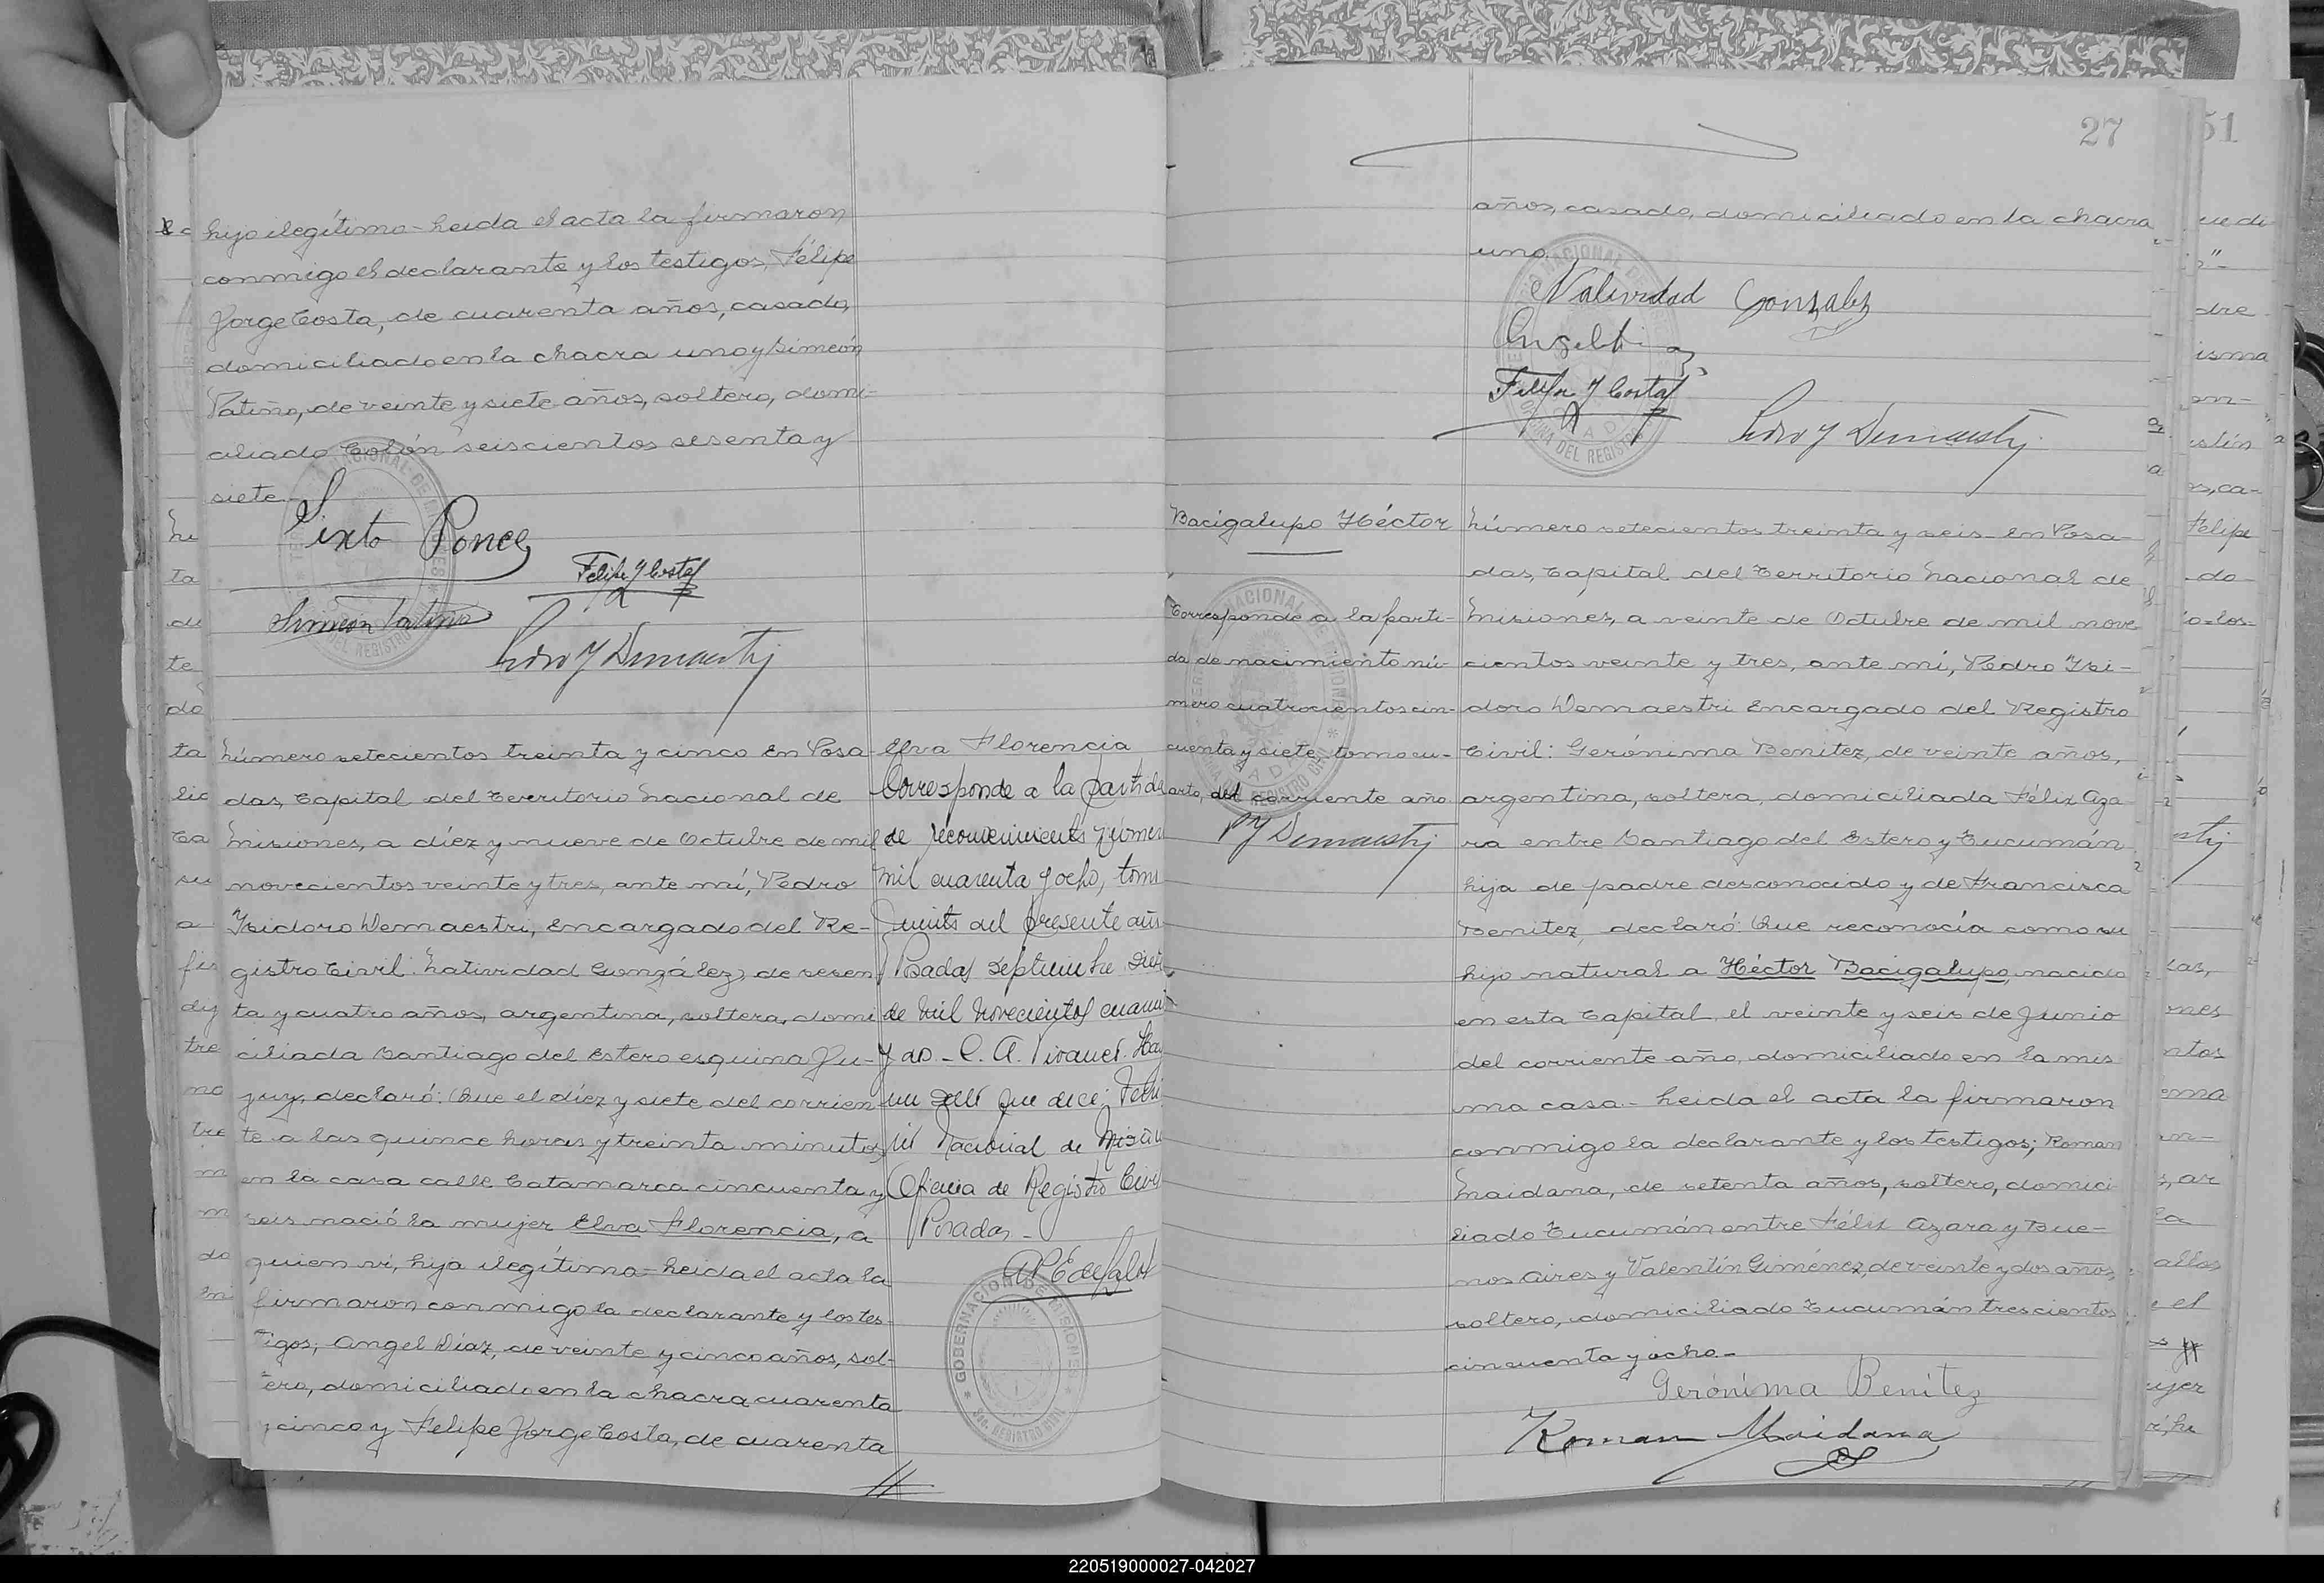 hijo ilegítimo - Leida el acta la firmaron
conmigo el declarante y los testigos, Félipe
Jorge Costa, de cuarenta años, casado,
domiciliado en la chacra uno y Simeón
Patiño, de veinte y siete años, soltero, domi-
ciliado Colón seiscientos sesenta y
siete.-
Sixto Ponce
Felipe J Costa
Simeón Patiño
Pedro Y Demaestri
Número setecientos treinta y cinco En Posa-
das, Capital del Territorio Nacional de
Misiones, a diéz y nueve de Octubre de mil
novecientos veinte y tres, ante mí, Pedro
Ysidoro Demaestri, Encargado del Re-
gistro Civil: Natividad González, de sesen
ta y cuatro años, argentina, soltera, domi
ciliada Santiago del Estero esquina Ju-
juy, declaró: Que el diéz y siete del corrien
te a las quince horas y treinta minutos
en la casa calle Catamarca cincuenta y
seis nació la mujer Elva Florencia, a
quien ví, hija ilegítima - Leida el acta la
firmaron conmigo la declarante y los tes-
tigos; Angel Díaz, de veinte y cinco años, sol-
tero, domiciliado en la chacra cuarenta
y cinco y Felipe Jorge Costa, de cuarenta
Elva Florencia
Corresponde a la partida
de reconocimiento número
mil cuarenta y ocho, tomo
del presente año
Posadas Septiembre
de mil novecientos
un sello que dice:
Nacional de
Oficina de Registro Civil
Posadas -
GOBERNACION DE MISIONES
27
51
años, casado, domiciliado en la chacra
uno.
Natividad Gonzalez
Angel
Felipe J Costa
Pedro Y Demaestri
Bacigalupo Héctor
Corresponde a la parti-
da de nacimiento nú-
mero cuatrocientos cin-
cuenta y siete, tomo cu-
arto, del corriente año
P Y Demaestri
Número setecientos treinta y seis - En Posa-
das, Capital del Territorio Nacional de
Misiones, a veinte de Octubre de mil nove
cientos veinte y tres, ante mí, Pedro Ysi-
doro Demaestri Encargado del Registro
Civil: Gerónima Benitez, de veinte años,
argentina, soltera, domiciliada Félix Aza
ra entre Santiago del Estero y Tucumán
hija de padre desconocido y de Francisca
Benitez, declaró: Que reconocía como su
hijo natural a Héctor Bacigalupo, nacido
en esta Capital, el veinte y seis de Junio
del corriente año, domiciliado en la mis
ma casa - Leida el acta la firmaron
conmigo la declarante y los testigos; Roman
Maidana, de setenta años, soltero, domici
liado Tucumán entre Félix Azara y Bue-
nos Aires y Valentín Giménez, de veinte y dos años,
soltero, domiciliado Tucumán trescientos
cincuenta y ocho.-
Gerónima Benítez
Roman Maidana
220519000027-042027